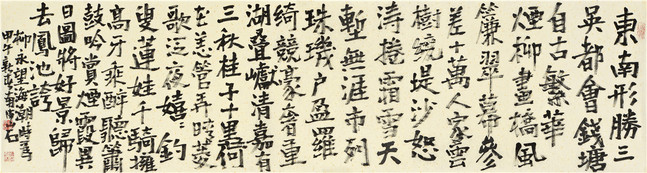 東南形勝三
吳都會錢塘
自古繁華
煙柳畫橋風
簾翠幕參
差十萬人家雲
樹繞堤沙怒
濤捲霜雪天
塹無涯市列
珠璣戶盈羅
綺競豪奢重
湖疊巘清嘉有
三秋桂子十里荷
花羌管弄晴菱
歌泛夜嬉〻釣
叟蓮娃千騎擁
高牙乘醉聽簫
鼓吟賞煙霞異
日圖將好景歸
去鳳池誇
柳永望海潮
甲午